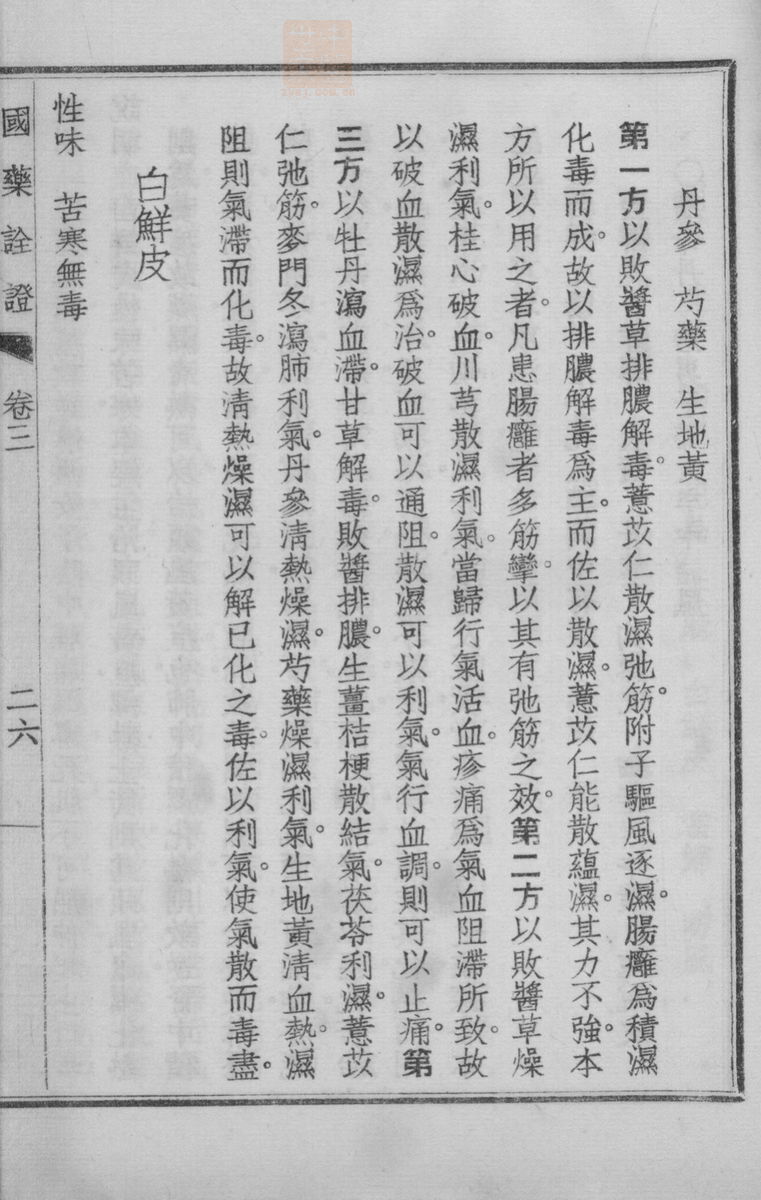 丹參　芍藥　生地黃
第一方以敗醬草排膿解毒。薏苡仁散濕弛筋。附子驅風逐濕。腸癰爲積濕
化毒而成。故以排膿解毒爲主。而佐以散濕。薏苡仁能散蘊濕。其力不強。本
方所以用之者。凡患腸癰者多筋攣。以其有弛筋之效。第二方以敗醬草燥
濕利氣。桂心破血。川芎散濕利氣。當歸行氣活血。疹痛爲氣血阻滯所致。故
以破血散濕爲治。破血可以通阻。散濕可以利氣。氣行血調。則可以止痛。第
三方以牡丹瀉血滯。甘草解毒。敗醬排膿。生薑桔梗散結氣。茯苓利濕。薏苡
仁弛筋。麥門冬瀉肺利氣。丹參淸熱燥濕。芍藥燥濕利氣。生地黃淸血熱。濕
阻則氣滯而化毒。故淸熱燥濕可以解已化之毒。佐以利氣。使氣散而毒盡。
白鮮皮
性味　苦寒無毒
國藥詮證　卷三　二六